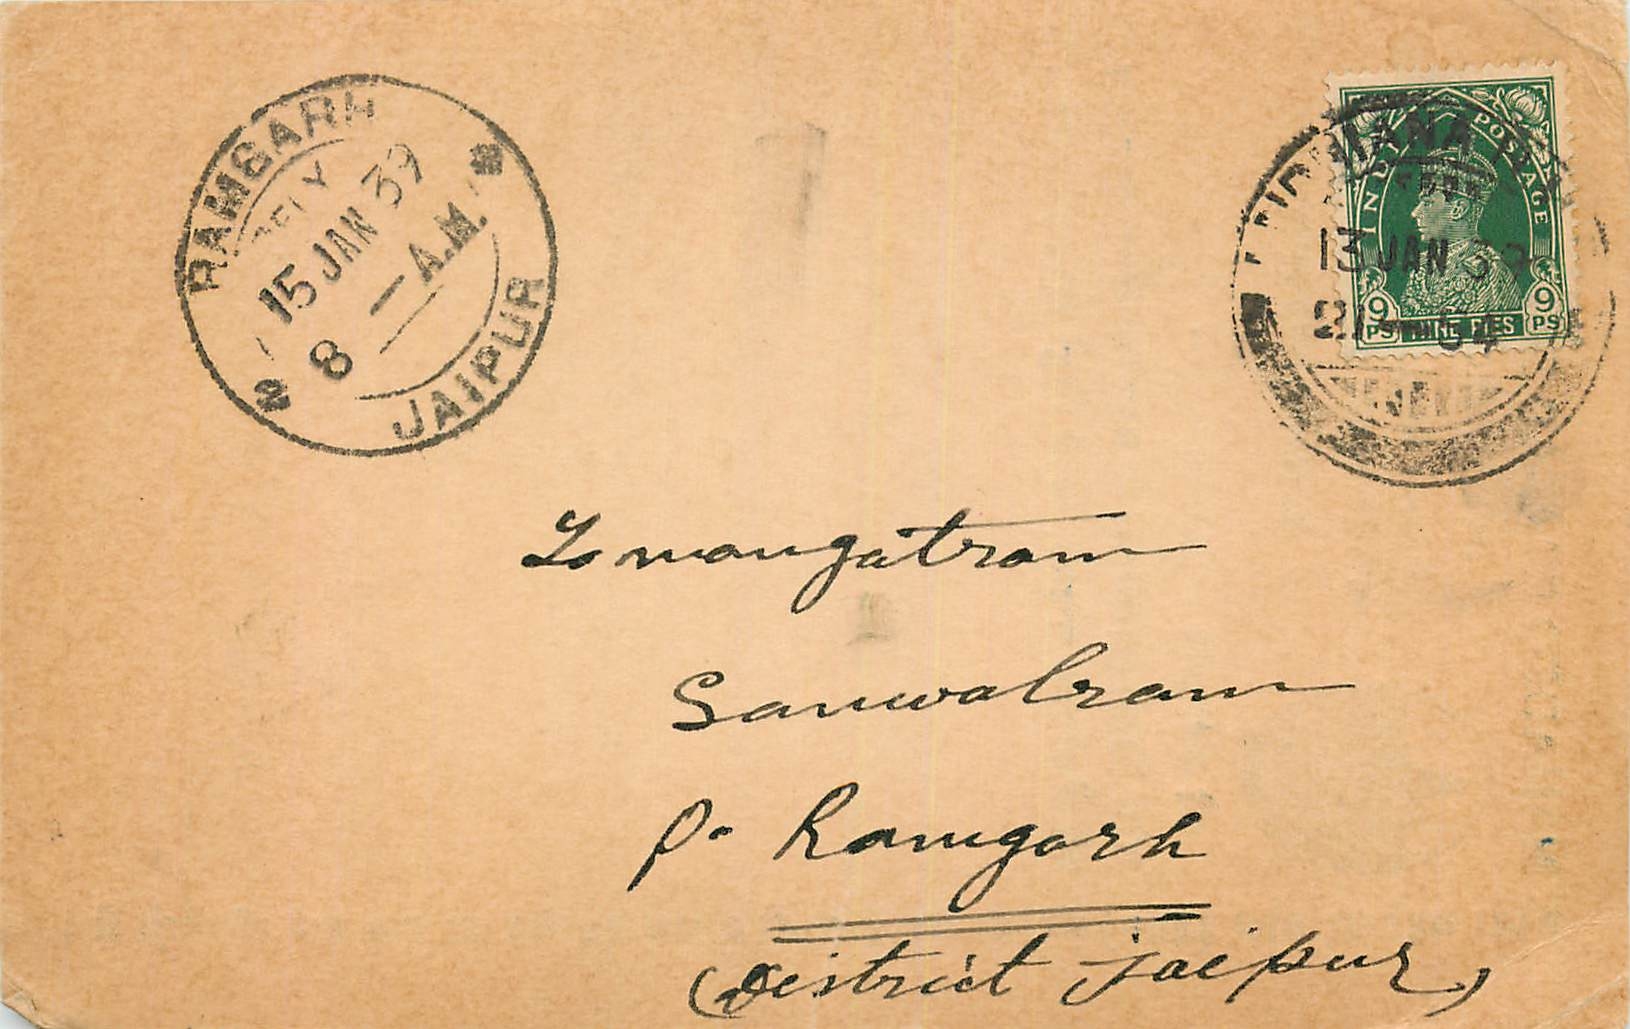 RAMGARH
DELY
15 JAN 39
8 - A.M.
JAIPUR
INDIA POSTAGE
9 PS
NINE PIES
9 PS
LUDHIANA
13 JAN 39
To mangatram
Sanwalram
P. Ramgarh
(District Jaipur)